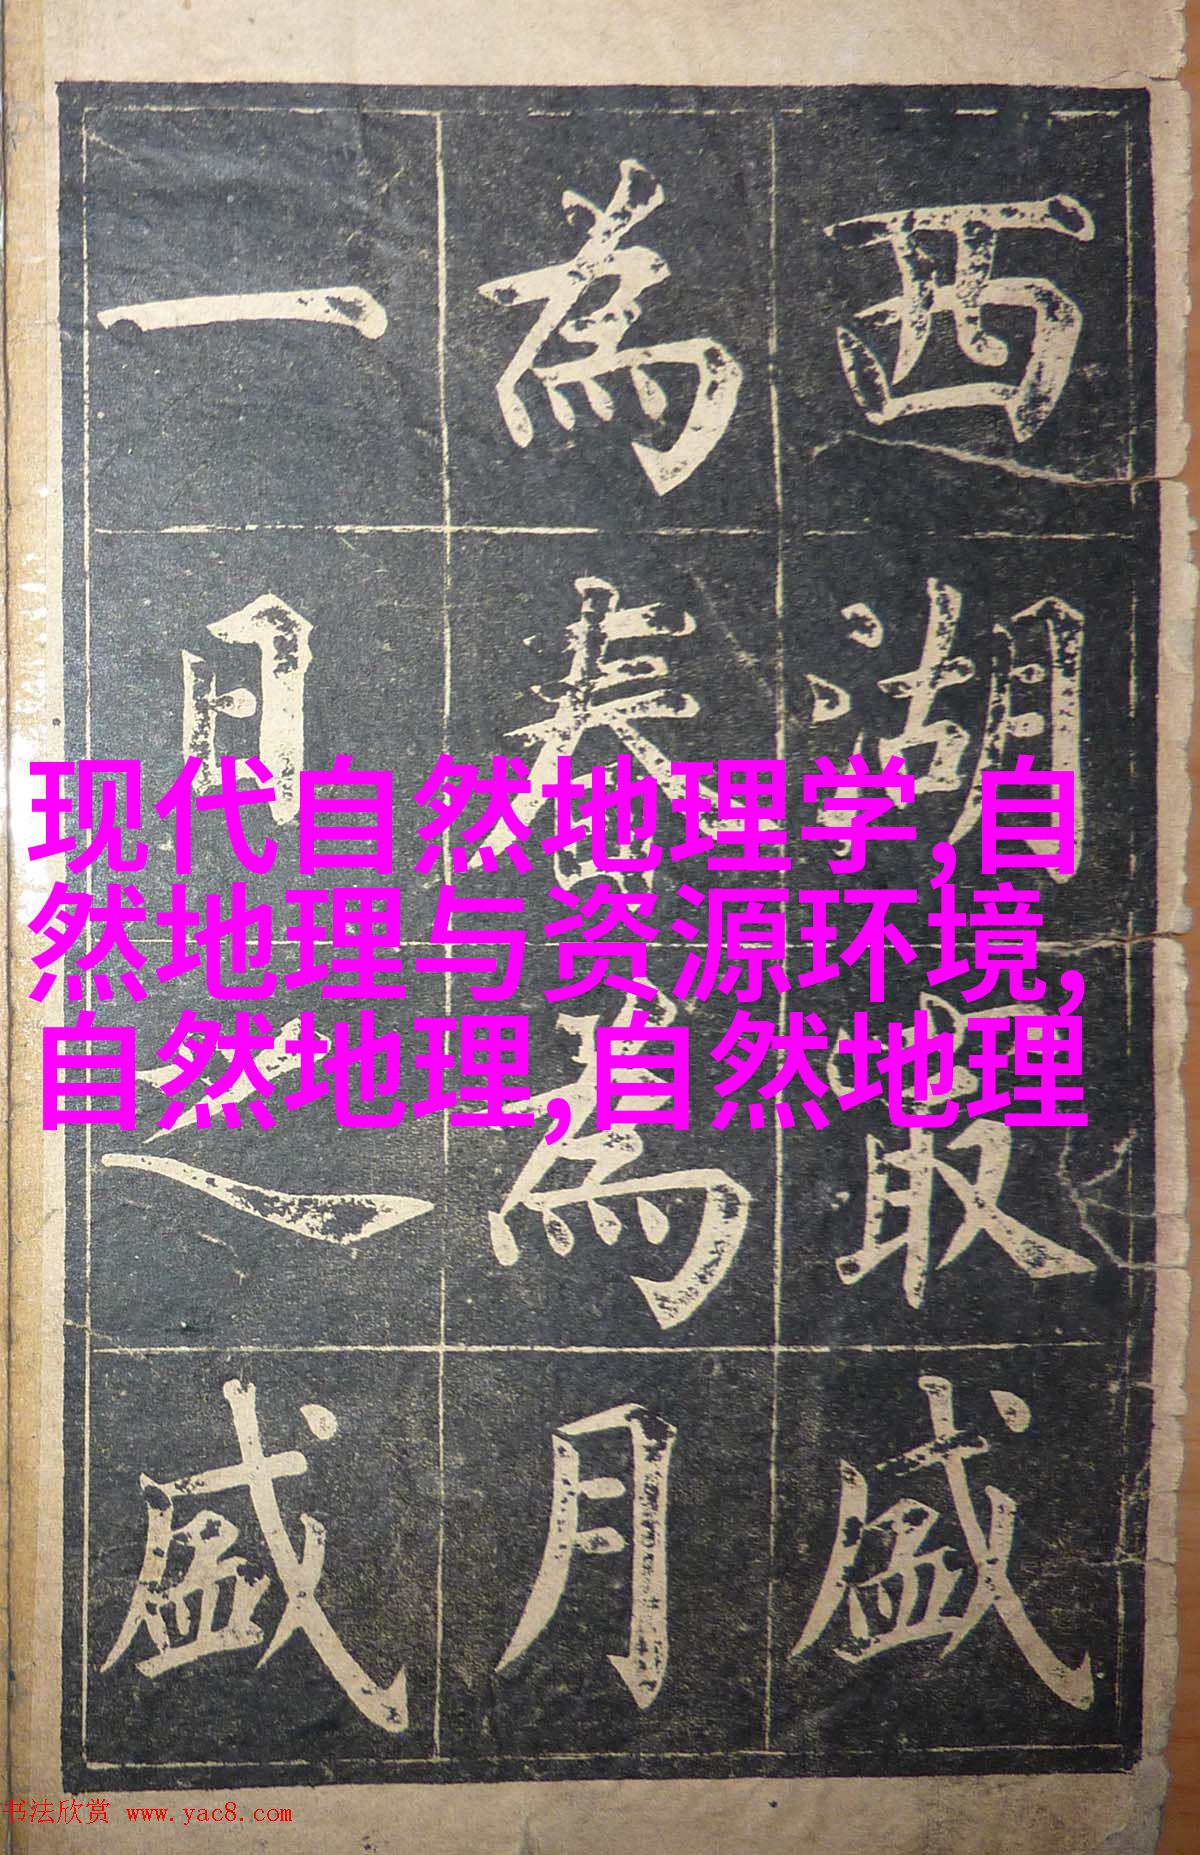 西湖最盛
為春為月
一日之盛
现代自然地理学,自
然地理与资源环境,
自然地理,自然地理
书法欣赏 www.yac8.com